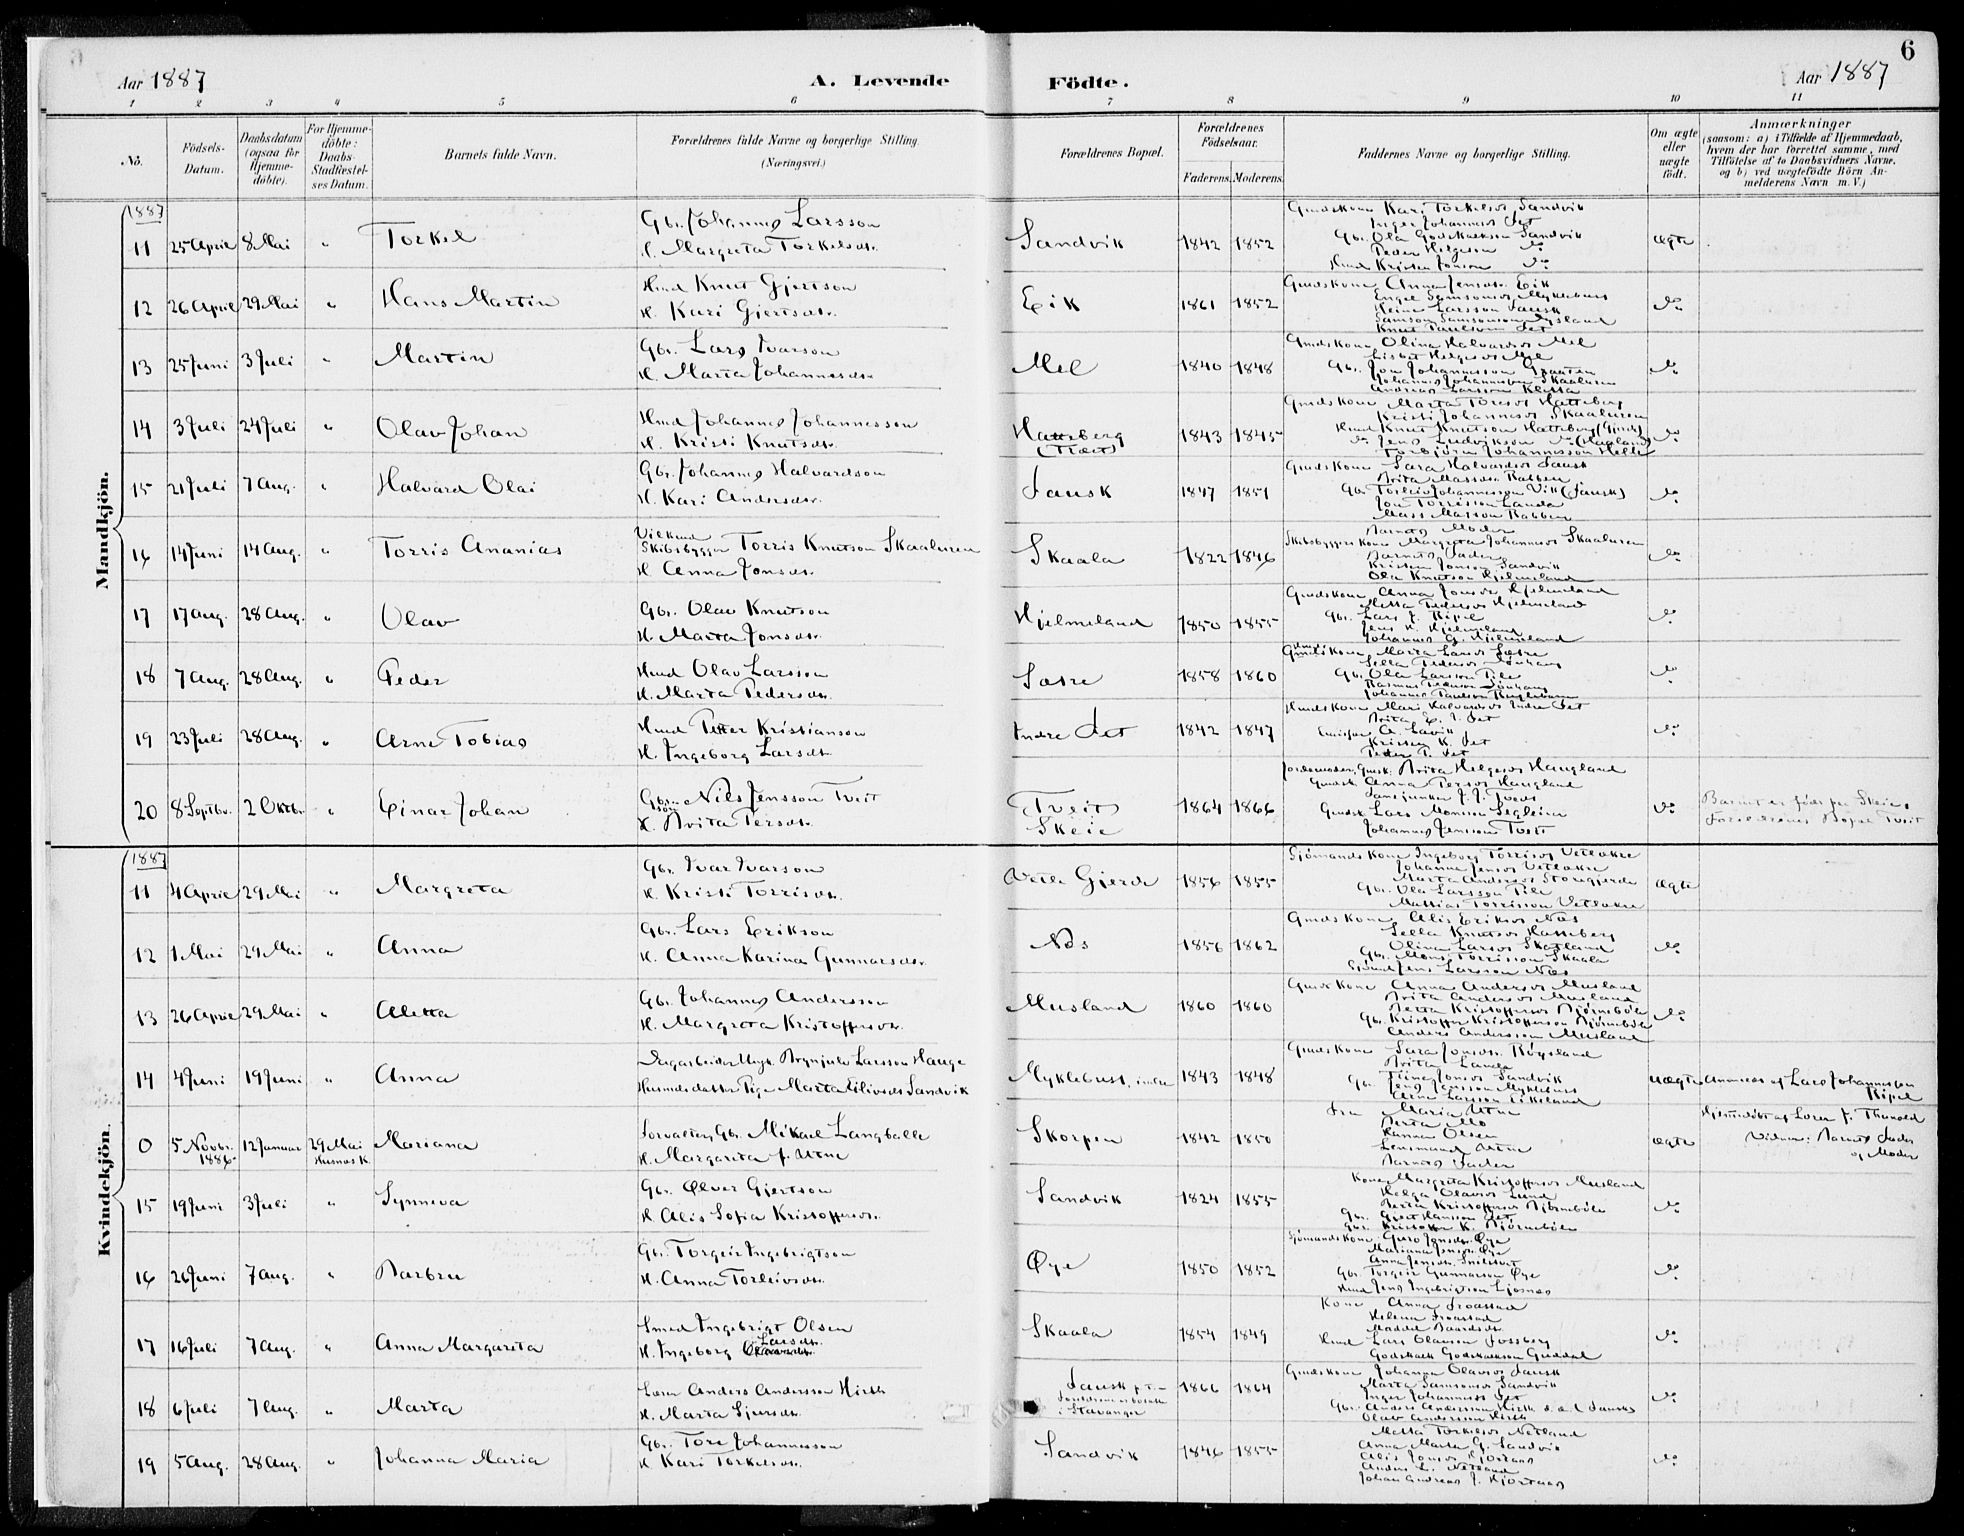 6
Aar 1887
A. Levende
Födte.
Aar 1887
1 2 3 4 5 6 7 8 9 10 11
No.
Födsels-Datum.
Daabsdatum (ogsaa for Hjemme-döbte).
For Hjemme-döbte: Daabs-Stadfæstel-ses Datum.
Barnets fulde Navn.
Forældrenes fulde Navne og borgerlige Stilling. (Næringsvei.)
Forældrenes Bopæl.
Forældrenes Födselsaar.
Faderens. Moderens.
Faddernes Navne og borgerlige Stilling.
Om ægte eller uægte födt.
Anmærkninger
(saasom: a) i Tilfælde af Hjemmedaab, hvem der har forrettet samme, med Tilföielse af to Daabsvidners Navne, og b) ved uægtefödte Börn An-melderens Navn m. V.)
Mandkjön.
1887
11 25 April 8 Mai " Torkel
Gbr. Johannes Larsson
H. Margreta Torkelsdr.
Sandvik 1842 1852
Gmds Kone Kari Torkelsdr Sandvik
Inger Johannesdr Set
Gbr. Ola Godskalkson Sandvik
Peder Helgeson do
Hmd Kristen Jonson do
ægte
12 26 April 29 Mai " Hans Martin
Hmd Knut Gjertson
H. Kari Gjertsdr.
Eik 1861 1852
Gmds Kone Anna Jensdr. Eik
Engel Samsonsdr Myklebust
Heine Larsson Sausk
Samson Samsonson
Knut Paulson Set
do
13 25 Juni 3 Juli " Martin
Gbr. Lars Ivarson
H. Marta Johannesdr.
Mel 1840 1848
Gmds Kone Olina Halvardsdr Mel
Lisbet Helgesdr Mel
Gbr. Jon Johannesson
Johannes Johannesson Skaaluren
Andreas Larsson
do
14 3 Juli 24 Juli " Olav Johan
Hmd Johannes Johannesson
H. Kristi Knutsdr.
Hatteberg
(Træet) 1843 1845
Gmds Kone Marta Toresdr Hatteberg
Kristi Johannesdr Skaaluren
Hmd Knut Knutson Hatteberg
do Jens Ludvikson do
Torbjörn Johannesson Helle
do
15 21 Juli 7 Aug. " Halvard Olai
Gbr. Johannes Halvardson
H. Kari Andersdr.
Sausk 1847 1851
Gmds Kone Sara Halvardsdr Sausk
Brita Massdr. Rabben
Gbr Torleiv Johannesson Vik (Sausk)
Jon Torrisson Landa
Mass Masson Rabben
do
16 14 Juni 14 Aug. " Torris Ananias
Skibsbygger Torris Knutson Skaaluren
H. Anna Jonsdr.
Skaala 1822 1846
Barnets Moder
Skibsbyggers Kone Margreta Johannesdr Skaaluren
Barnets Fader
Kristen Jonson Sandvik
Ola Knutson Hjelmeland
do
17 17 Aug. 28 Aug. " Olav
Gbr. Olav Knutson
H. Marta Jonsdr.
Hjelmeland 1850 1855
Gmds Kone Anna Jonsdr Hjelmeland
Metta Pedersdr Hjelmeland
Gbr. Lars J. Ripel
Jens K. Hjelmeland
Johannes G. Hjelmeland
do
18 7 Aug. 28 Aug. " Peder
Hmd Olav Larsson
H. Marta Pedersdr.
Sætre 1858 1860
Gmds Kone Marta Larsdr Sætre
Sella Pedersdr
Gbr. Ola Larsson Tile
Rasmus Pederson
Johannes Paulson
do
19 23 Juli 28 Aug. " Arne Tobias
Hmd Petter Kristianson
H. Ingeborg Larsdr.
Indre Set 1842 1847
Hmds Kone Mari Halvardsdr Indre Set
Brita E. I. Set
A. Lavik
Kristen K. Set
Peder P. Set
do
20 8 Septbr. 2 Oktbr. " Einar Johan
Gbr. Nils Jensson Tveit
H. Brita Persdr.
Tveit
Skeie 1864 1866
Jordemoder, Brita Helgesdr Haugland
Anna Persdr Haugland
J. J. Tveit
Lars Monsson
Johannes Jensson Tveit
do
Barnet er födt paa Skeie,
Forældrenes Bopæl Tveit
Kvindekjön.
1887
11 4 April 29 Mai " Margreta
Gbr. Ivar Ivarson
H. Kristi Torrisdr.
Vetle Gjerde 1856 1855
Sjömands Kone Ingeborg Torrisdr Vetlakre
Johanna Jensdr Vetlakre
Marta Andersdr Storegjerde
Gbr. Ola Larsson Tile
Mathias Torrisson Vetlakre
ægte
12 1 Mai 29 Mai " Anna
Gbr. Lars Erikson
H. Anna Karina Gunnarsdr.
Nes 1856 1862
Gmds Kone Alis Eriksdr Nes
Sella Knutsdr Hatteberg
Olina Larsdr Skotland
Gbr. Mons Torrisson Skaala
Jens Larsson Nes
do
13 26 April 29 Mai " Aletta
Gbr. Johannes Andersson
H. Margreta Kristoffersdr.
Musland 1860 1860
Gmds Kone Anna Andersdr Musland
Brita Andersdr Musland
Berta Kristoffersdr Bjørnebøle
Gbr. Kristoffer Kristofferson Bjørnebøle
Anders Andersson Musland
do
14 4 Juni 19 Juni " Anna
Dagarbeider Ungk. Brynjulv Larsson Hauge
Husmdsdatter Pige Marta Eilivsdr Sandvik
Myklebust, indre 1843 1848
Gmds Kone Sara Jonsdr. Røysland
Brita Landa
Trine Jonsdr Sandvik
Gbr. Jens Jensson Myklebust
Arne Larsson Eikeland
uægte Anmeldt af Lars Johannesson
Ripel
0 5 Novbr. 1886 12 Januar 29 Mai
Husnes K. Mariana
Forvalter, Gbr. Mikael Langballe
H. Margareta f. Utne
Skorpen 1842 1850
Fru Maria Utne
Berta Mo
Hanna Olsen
Lensmand Utne
Barnets Fader
ægte
Hjemmedöbt af Lærer J. Thunold
Vidner: Barnets Fader
og Moder
15 19 Juni 3 Juli " Synneva
Gbr. Ølver Gjertson
H. Alis Sofia Kristoffersdr.
Sandvik 1824 1855
Kone Margreta Kristoffersdr Musland
Helga Olavsdr Lund
Berta Kristoffersdr Bjørnebøle
Gbr. Gjert Hansson Set
Gbr. Kristoffer K. Bjørnebøle
do
16 26 Juni 7 Aug. " Barbru
Gbr. Torgeir Ingebrigtson
H. Anna Torleivsdr.
Øye 1850 1852
Sjömands Kone Guro Jonsdr. Øye
Mariana Jonsdr. Øye
Anna Jensdr.
Gbr. Torgeir Gunnarson Øye
Hmd Jens Ingebrigtson Ljosnes
do
17 16 Juli 7 Aug. " Anna Margareta
Smed Ingebrigt Olsen
H. Ingeborg Larsdr.
Skaala 1854 1849
Kone Anna Froastad
Helena Froastad
Maddel Baardsdr
Hmd Lars Olavson Fossberg
Godskalk Godskalkson Guddal
do
18 6 Juli 7 Aug. " Marta
Lærer Anders Andersson Hirth
H. Marta Sjursdr.
Sausk p. t.
i Stavanger 1866 1864
Gmds Kone Johanna Olavsdr Sausk
Marta Samsonsdr Sandvik
Inger Johannesdr Set
Gbr. Anders Andersson Hirth d. æ. (Sausk)
Olav Andersson Hirth
do
19 5 Aug. 28 Aug. " Johanna Maria
Gbr. Tore Johannesson
H. Kari Torkelsdr.
Sandvik 1846 1855
Metta Torkelsdr Netland
Anna Marta G. Sandvik
Alis Jonsdr Hjortaas
Anders L. Netland
Johan Andreas J. Hjortaas
do